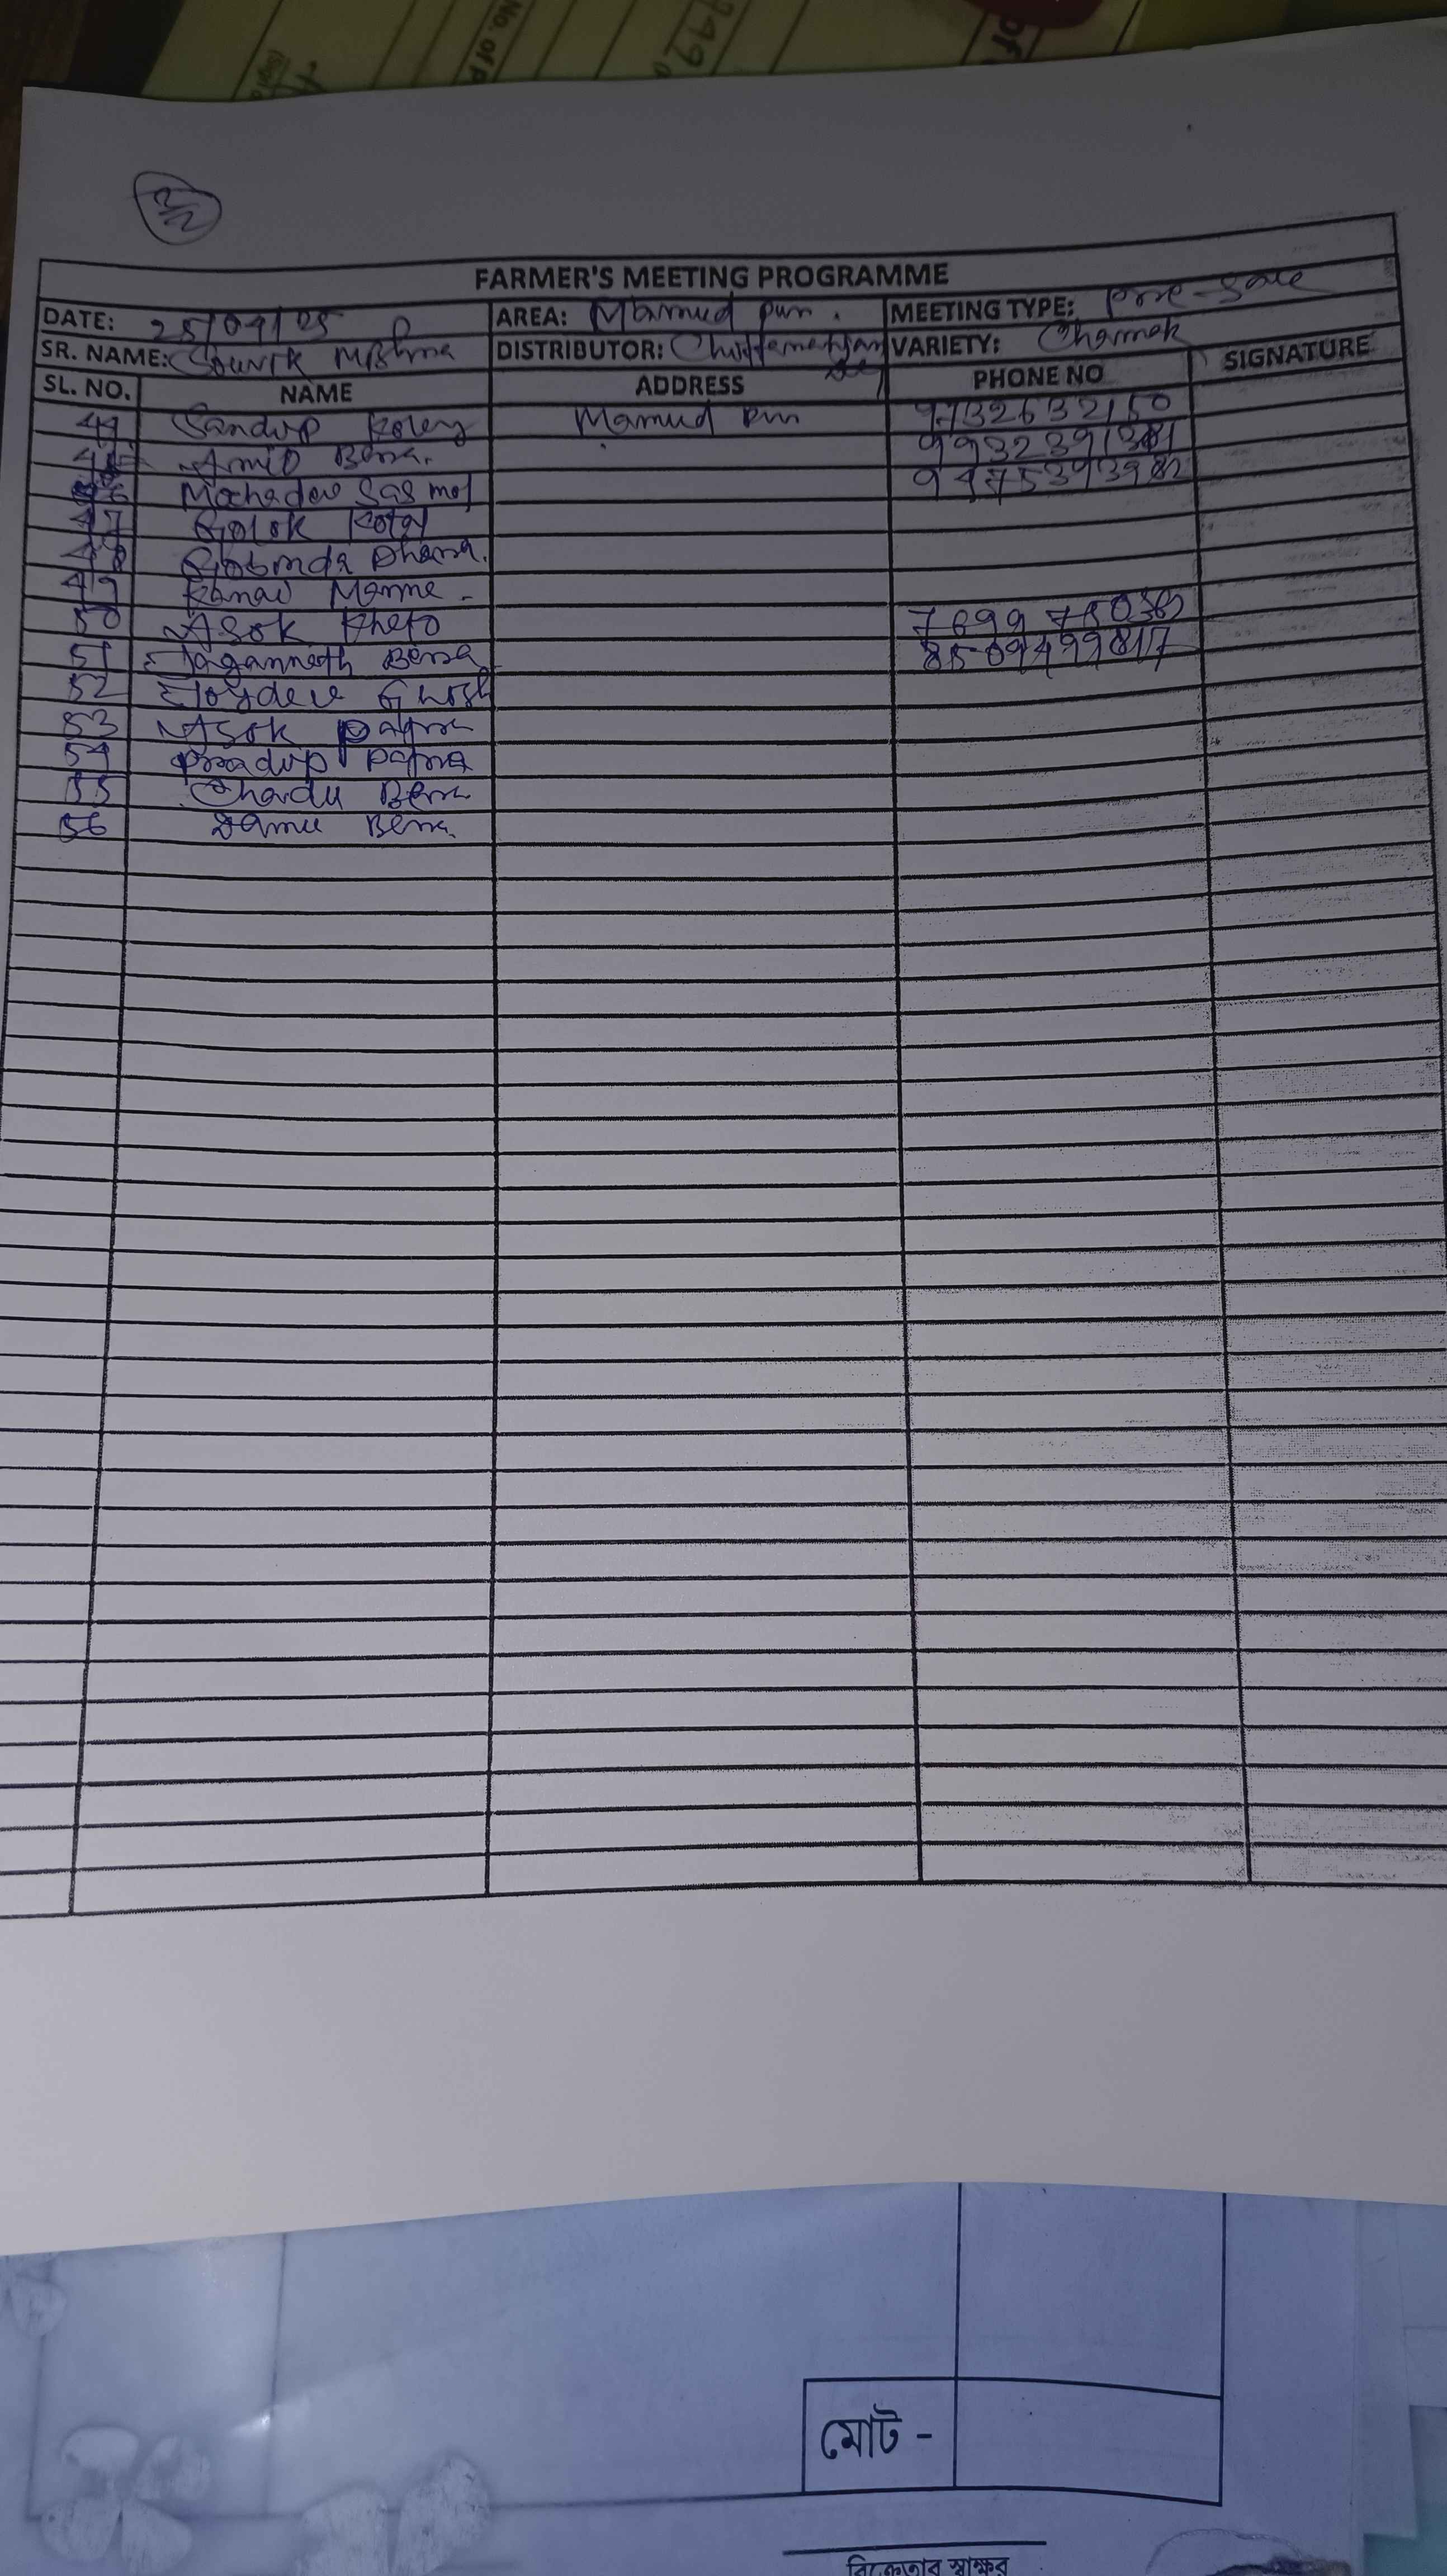 No. of
799
of
2/2
FARMER'S MEETING PROGRAMME
DATE: 25/04/25 AREA: Mamud pur. MEETING TYPE: pre-sale
SR. NAME: Souvik Mishra DISTRIBUTOR: Chittaranjan Dey VARIETY: Chamak
SL. NO. NAME ADDRESS PHONE NO SIGNATURE
44 Sandip Koley Mamud pur 9732632150
45 Amit Bera. 9932391381
46 Mahadev Sasmol 9475393982
47 Golok Kotal
48 Gobinda Dhara.
49 Kanai Manna -
50 Asok Kheto 7699780365
51 Jagannath Bera 8509499817
52 Joydev Ghosh
53 Asok patra
54 pradip patra
55 Chandu Bera
56 Damu Bera.
মোট -
বিক্রেতার স্বাক্ষর